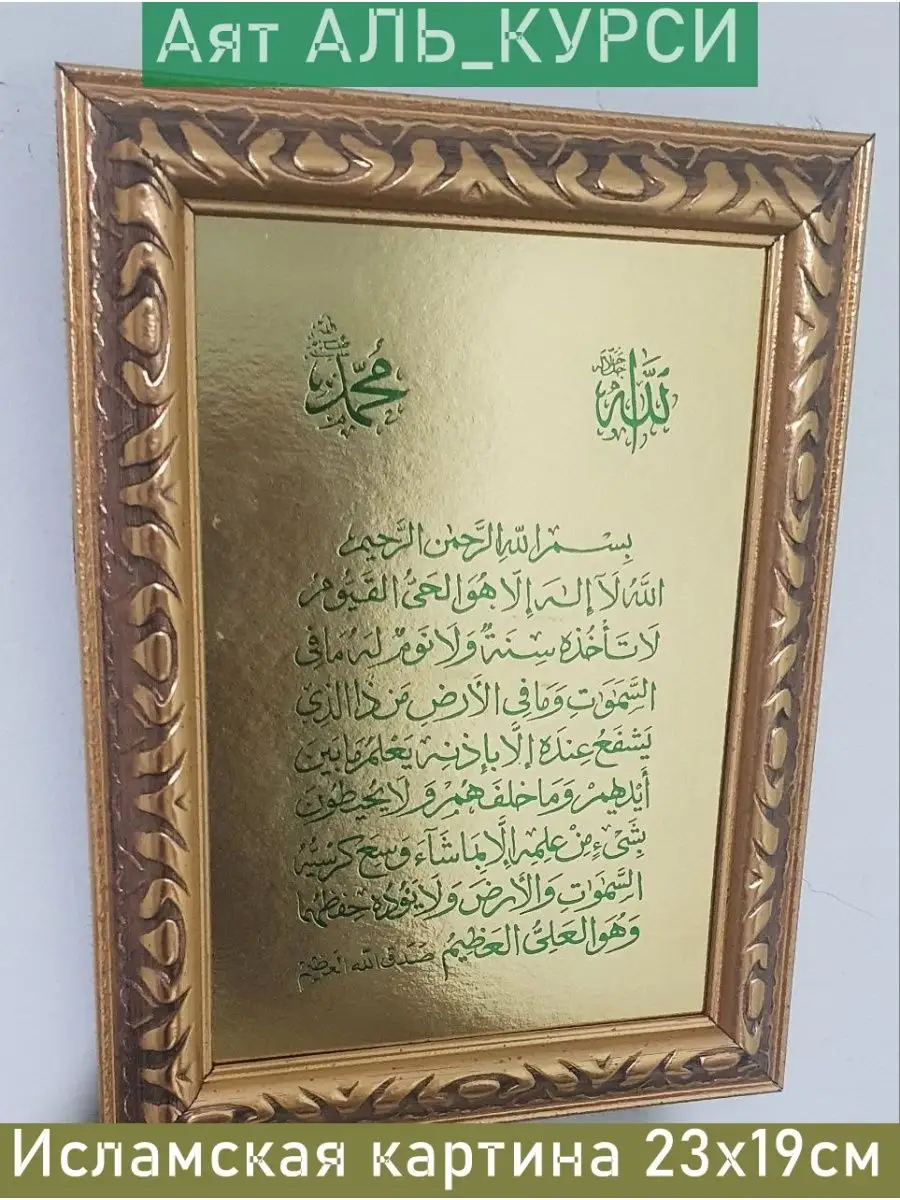 Аят АЛЬ_КУРСИ
الله جل جلاله
محمد
بِسْمِ اللهِ الرَّحْمٰنِ الرَّحِيمِ
اَللهُ لَآ إِلٰهَ إِلَّا هُوَ الْحَيُّ الْقَيُّومُ
لَا تَأْخُذُهُ سِنَةٌ وَلَا نَوْمٌ لَهُ مَا فِي
السَّمٰوَاتِ وَمَا فِي الْأَرْضِ مَنْ ذَا الَّذِي
يَشْفَعُ عِنْدَهُ إِلَّا بِإِذْنِهِ يَعْلَمُ مَا بَيْنَ
أَيْدِيهِمْ وَمَا خَلْفَهُمْ وَلَا يُحِيطُونَ
بِشَيْءٍ مِنْ عِلْمِهِ إِلَّا بِمَا شَآءَ وَسِعَ كُرْسِيُّهُ
السَّمٰوَاتِ وَالْأَرْضَ وَلَا يَؤُدُهُ حِفْظُهُمَا
وَهُوَ الْعَلِيُّ الْعَظِيمُ صَدَقَ الله العَظِيم
Исламская картина 23х19см